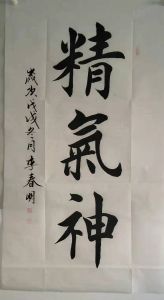 精氣神
歲次戊戌冬月李春明